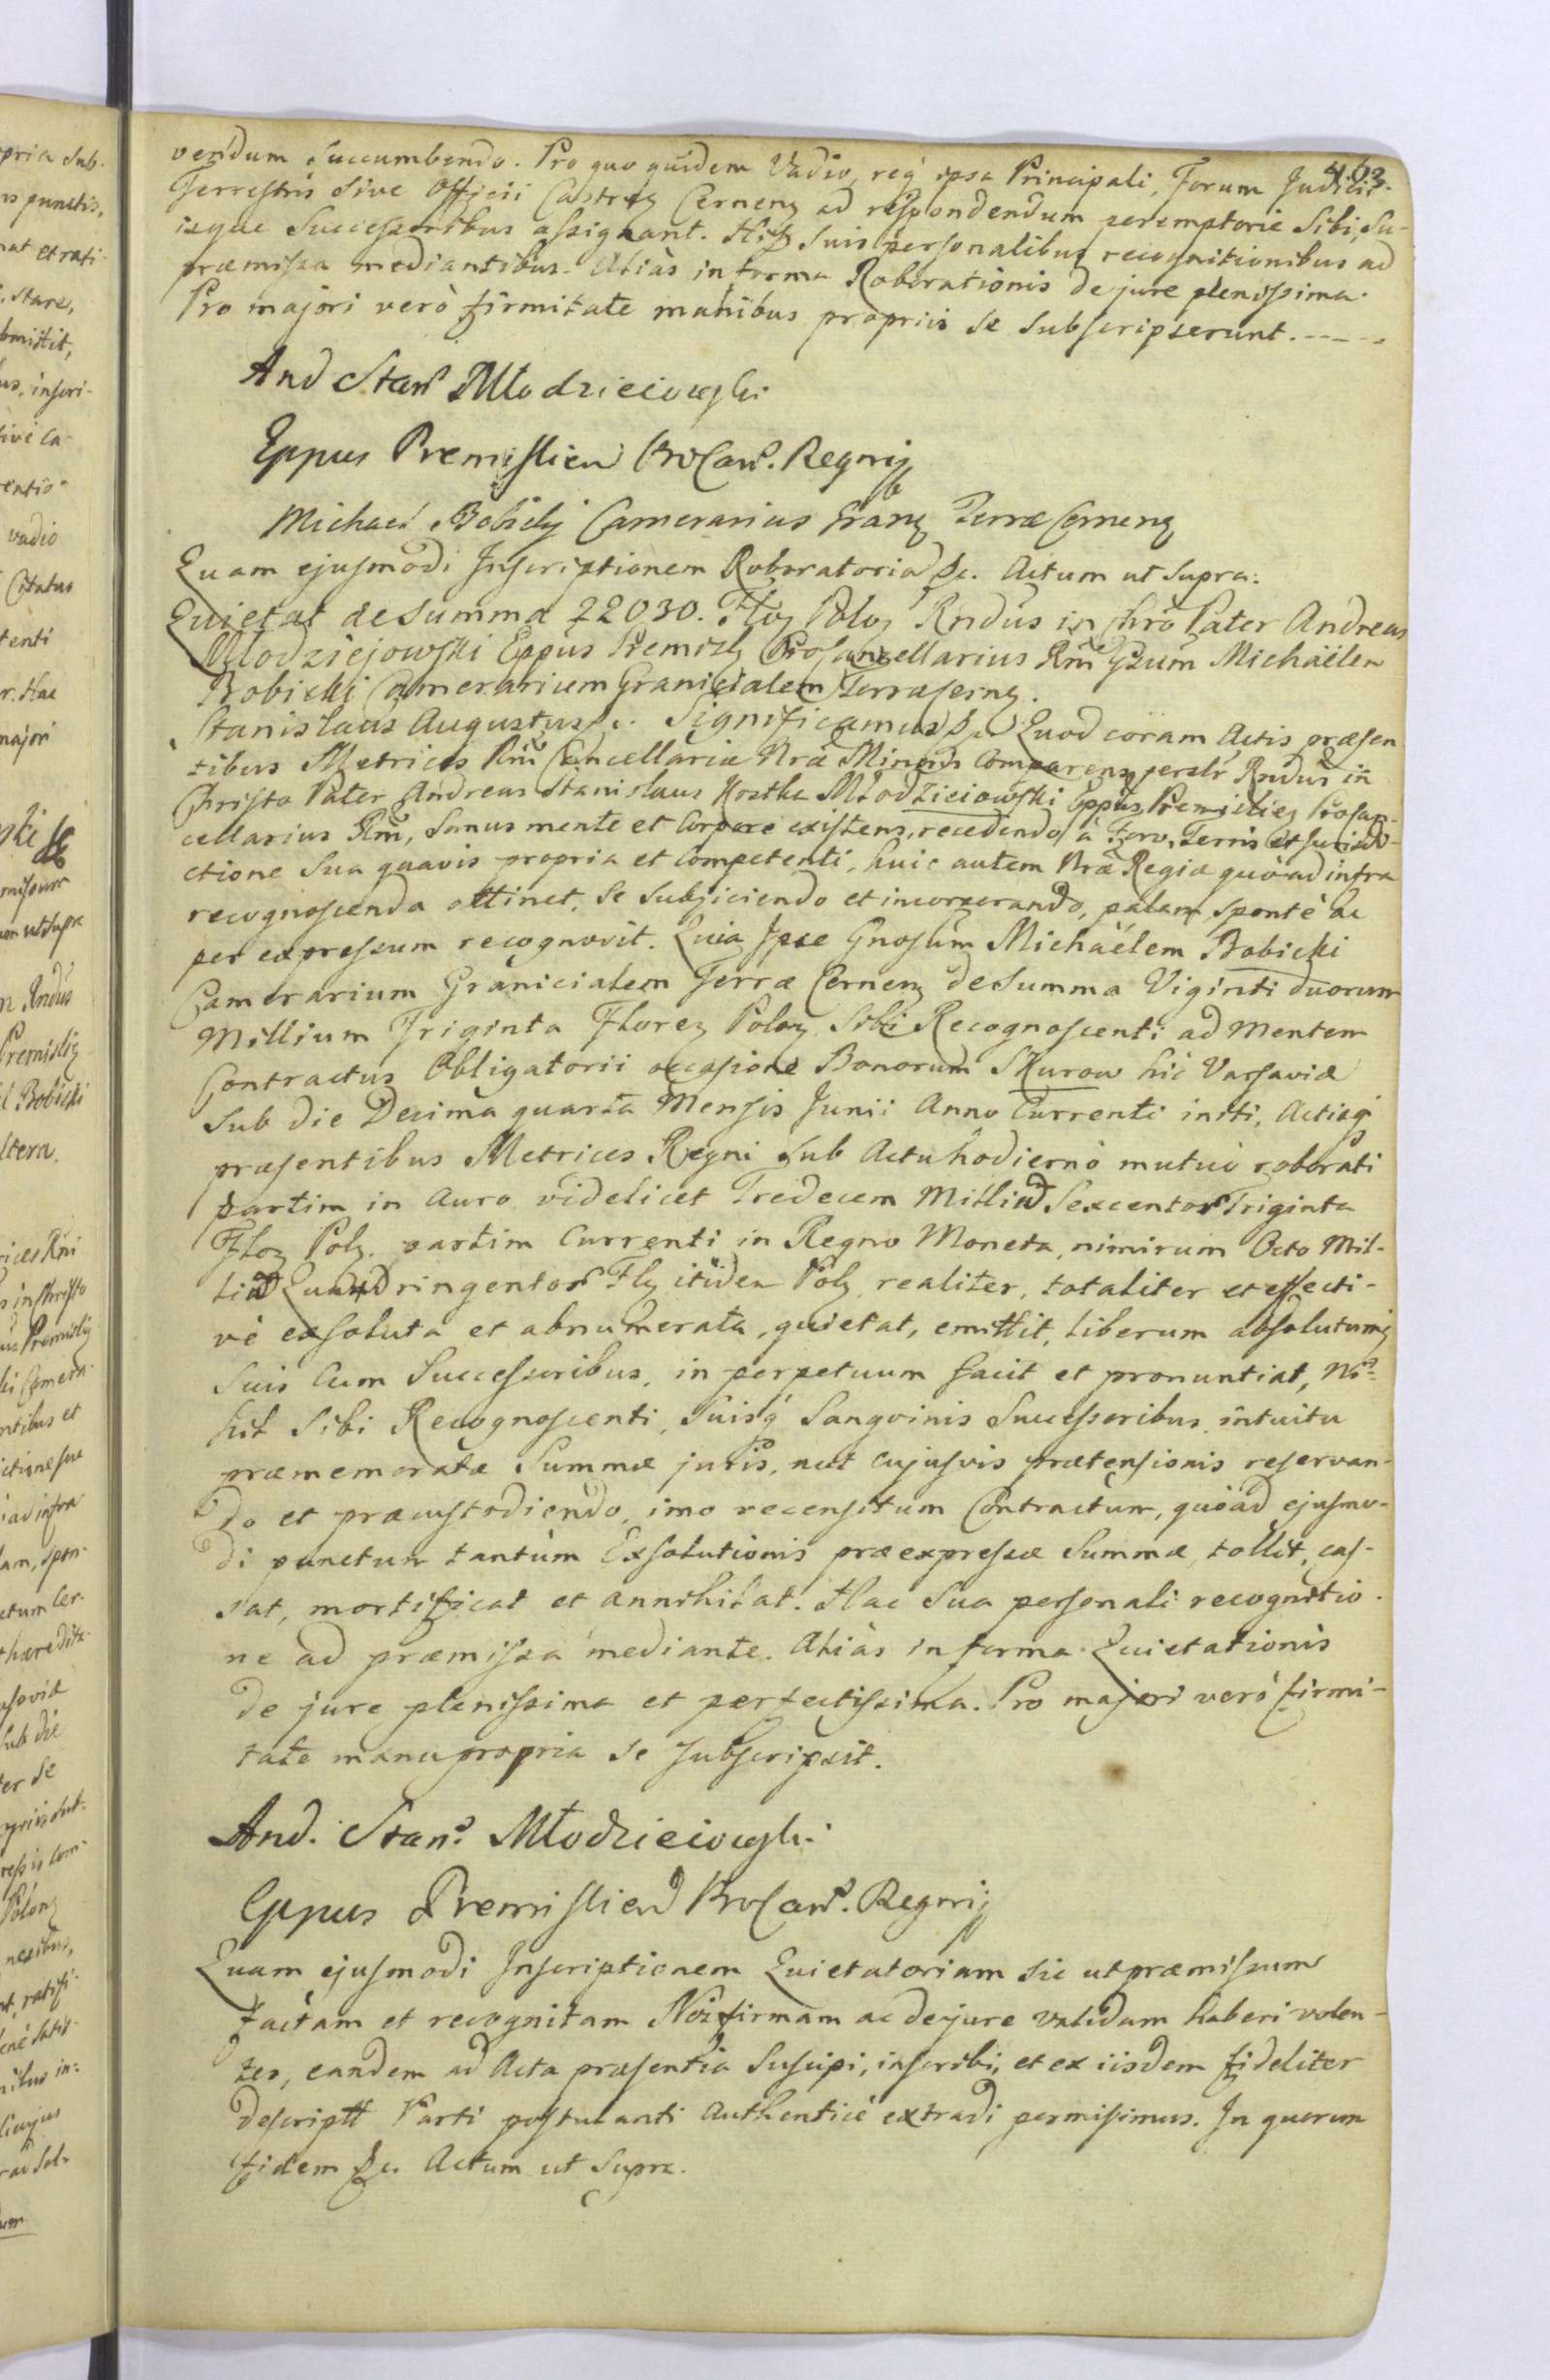 463.
versum succumbendo. Pro quo quidem Vadio, reqꝫ ipsa Principali, Forum Judicii
Terrestris sive Officii Castreꝫ Cerneꝫ ad respondendum peremptorie Sibi, Su-
isque Successoribus assignant. Hisꝫ suis personalibus recognitionibus ad
præmissa mediantibus. Aliàs in forma Roborationis de jure plenissima.
Pro majori verò firmitate manibus propriis se subscripserunt.-----
And Stanˢ Młodzieiowski
Eppus Premislien ProCanˢ. Regni
Michael Bobicki Camerarius Granꝫ Terræ Cernenꝫ
Quam ejusmodi Inscriptionem Roboratoriã &c. Actum ut supra.
Quietat de summa 22030. Floꝫ Poloꝫ Rndus in Chro Pater Andreas
Młodziejowski Eppus Premislꝫ ProCancellarius Rni Gsum Michaëlem
Bobicki Camerarium Granicialem Terræ Cernꝫ.
Stanislaus Augustus &c. Significamus &c. Quod coram Actis præsen
tibus Metrices Rni Cancellariæ Nræ Minoris Comparens persolr Rndus in
Christo Pater Andreas Stanislaus Kostka Młodzieiowski Eppus Premislieꝫ ProCan-
cellarius Rni, sanus mente et Corpore existens, recedendo à Foro, Terris et Jurisdi-
ctione sua quavis propria et Competenti, huic autem Nræ Regiæ quò ad infra
recognoscenda attinet, se subjiciendo et incorporando, palam, spontè ac
per expressum recognovit. Quia Ipse Gnosum Michaëlem Bobicki
Camerarium Granicialem Terræ Cernenꝫ de Summa Viginti duorum
Millium Triginta Floreꝫ Poloꝫ Sibi Recognoscenti ad Mentem
Contractus Obligatorii occasione Bonorum Skurow hic Varsaviæ
sub die Decima quarta Mensis Junii Anno Currenti initi, Actisqꝫ
præsentibus Metrices Regni sub Actu hodierno mutuò roborati
partim in Auro videlicet Tredecem Milliũ Sexcentor Triginta
Floꝫ Polꝫ. partim Currenti in Regno Moneta, nimirum Octo Mil-
liũ Quadringentor Flꝫ itidem Polꝫ realiter, totaliter et effecti-
vè exsoluta et abnumerata, quietat, emittit, liberum absolutumqꝫ
suis cum Successoribus, in perpetuum facit et pronuntiat, Ni-
hil Sibi Recognoscenti, suisqꝫ Sangvinis Successoribus, intuitu
præmemoratæ Summæ juris, aut cujusvis prætensionis reservan-
do et præcustodiendo, imo recensitum Contractum, quòad ejusmo-
di punctum tantùm Exsolutionis præexpressæ Summæ, tollit, cas-
sat, mortificat et annihilat. Hac Sua personali recognitio-
ne ad præmissa mediante. Aliàs in forma Quietationis
de jure plenissima et perfectissima. Pro majori verò firmi-
tate manu propria se subscripsit.
And. Stanˢ. Młodzieiowski
Eppus Premislien ProCanˢ. Regni
Quam ejusmodi Inscriptionem Quietatoriam sic ut præmissum
factam et recognitam Nos firmam ac de jure validam haberi volen-
tes, eandem ad Acta præsentia suscipi, inscribi, et ex iisdem fideliter
descriptt Parti postulanti Authenticè extradi permisimus. In quorum
fidem &c. Actum ut supra.